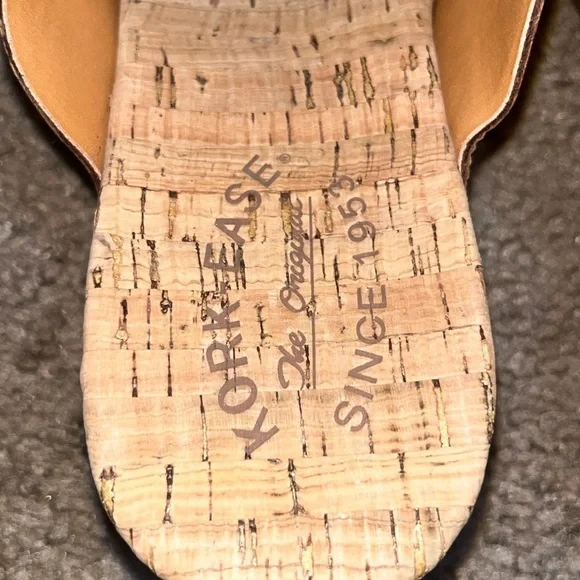 KORK-EASE®
The Original
SINCE 1953